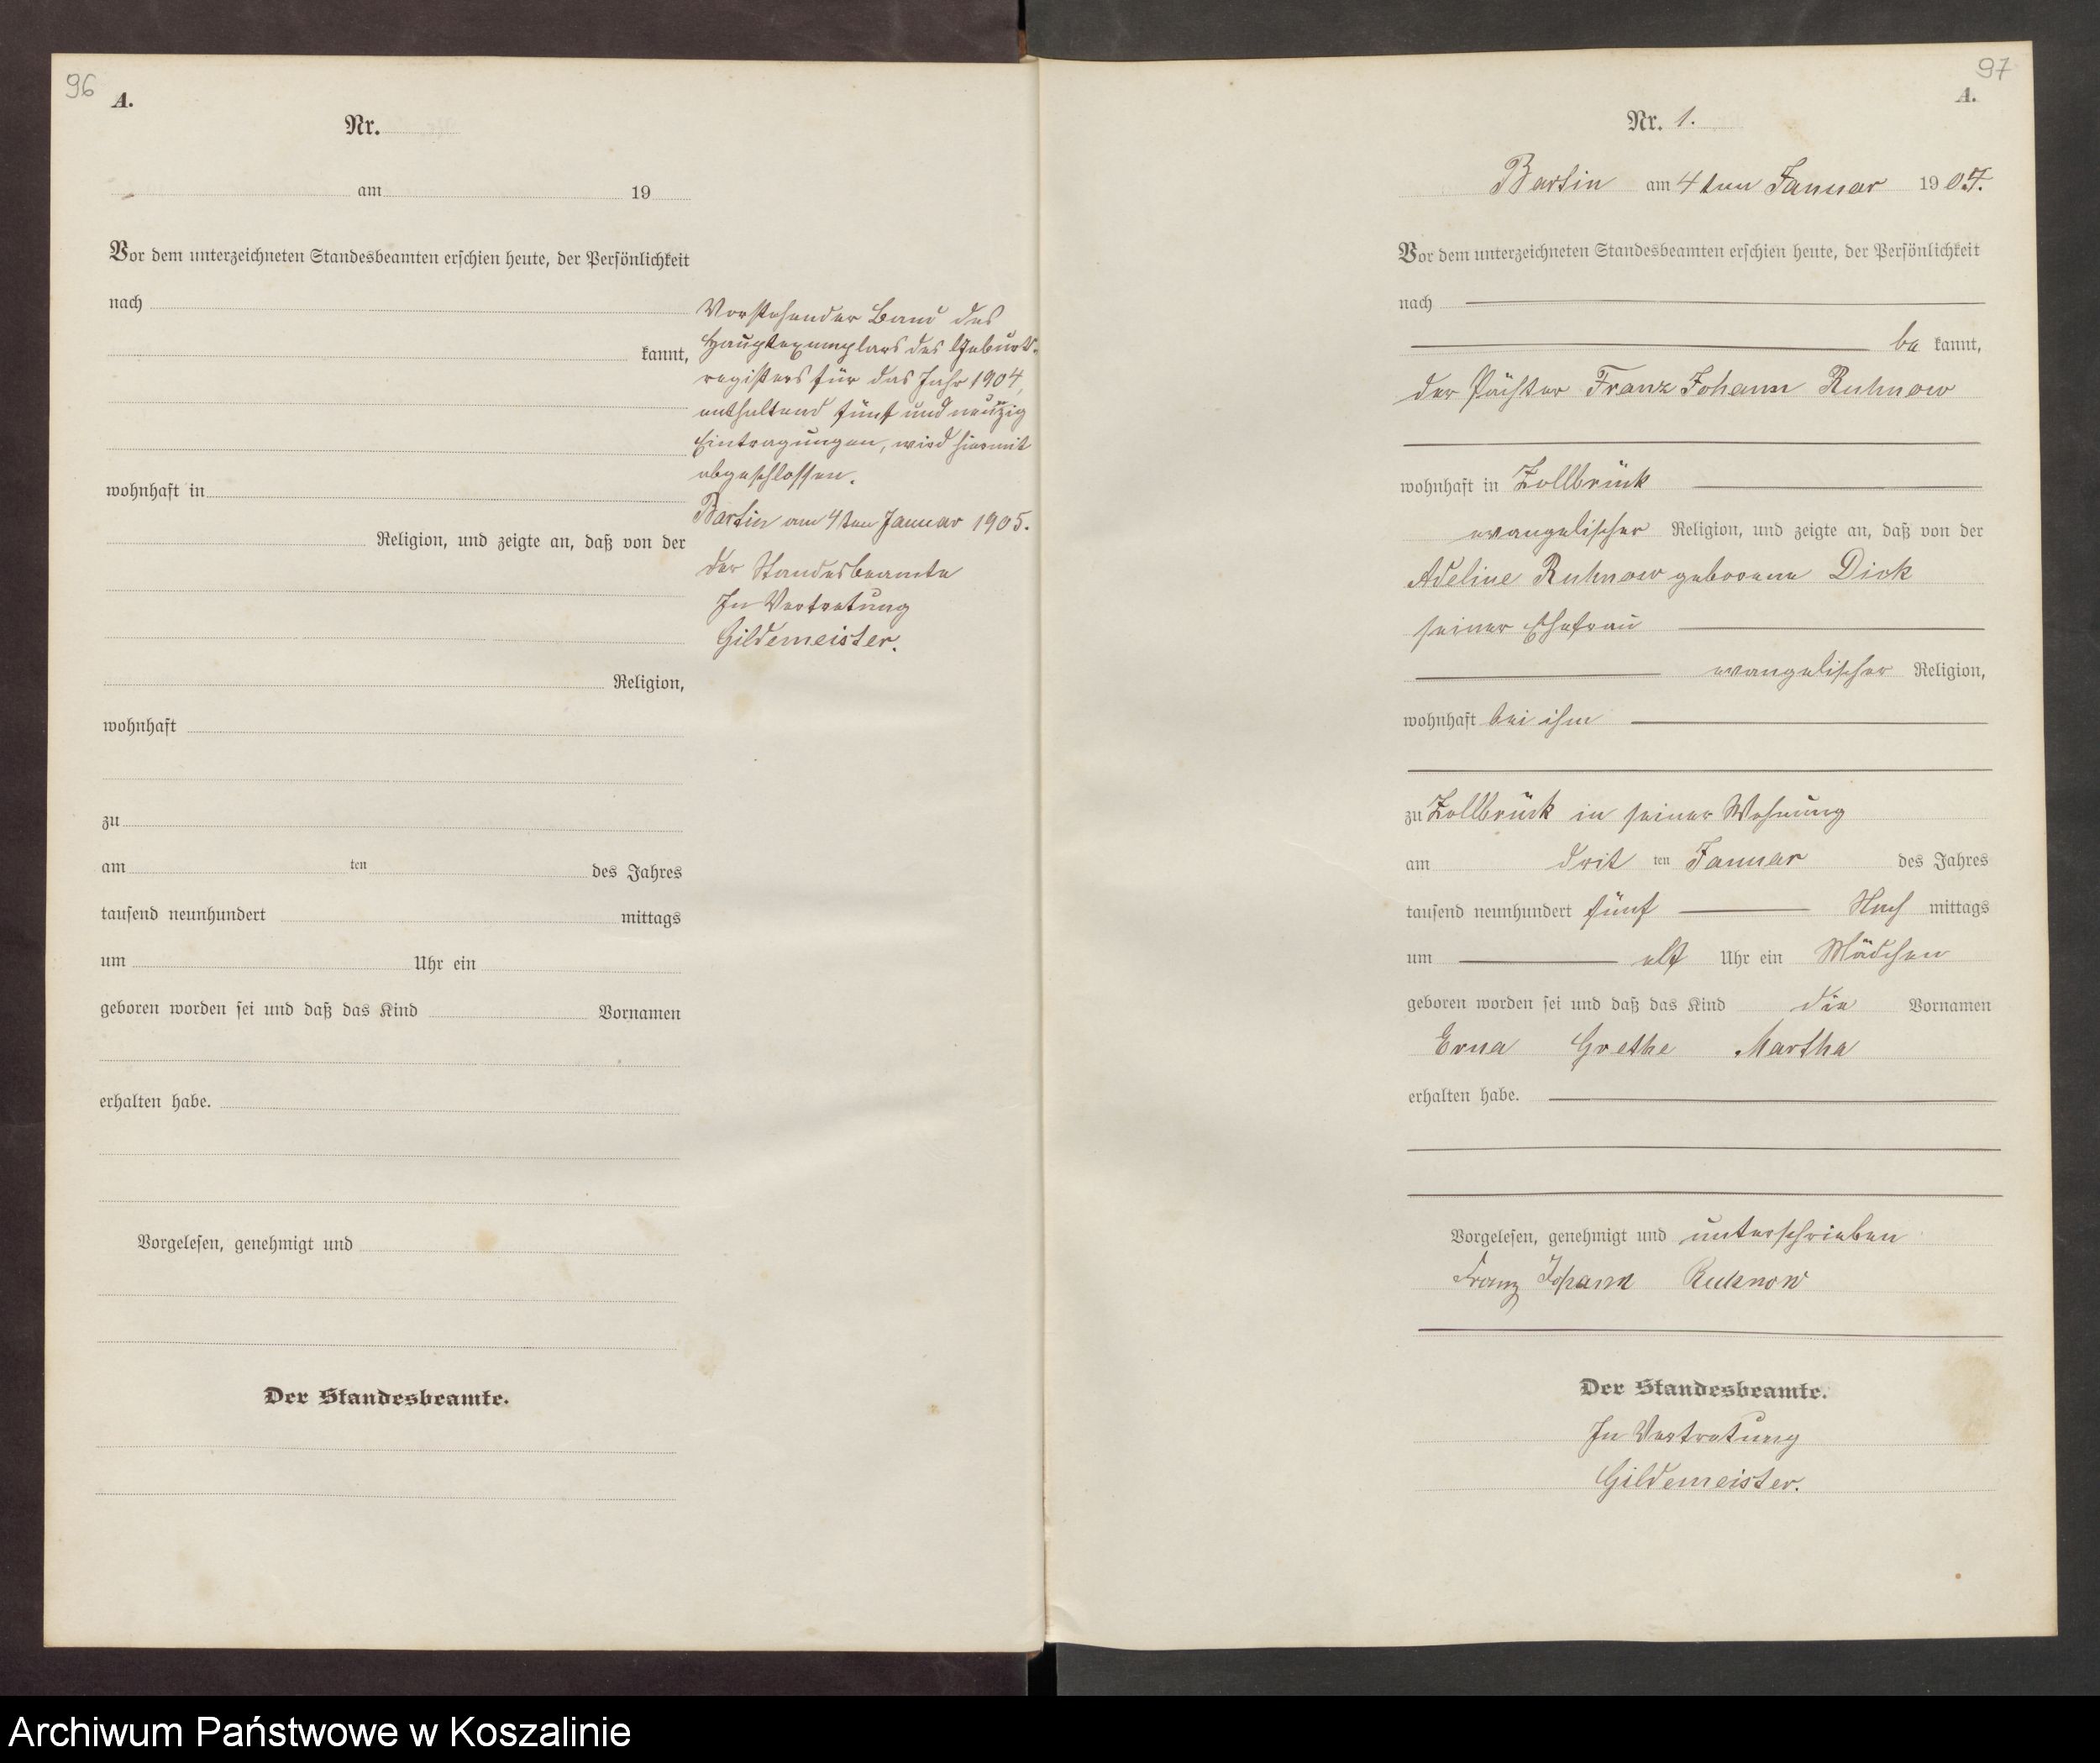 96
A.
Nr.
am 19
Vor dem unterzeichneten Standesbeamten erschien heute, der Persönlichkeit
nach
kannt,
wohnhaft in
Religion, und zeigte an, daß von der
Religion,
wohnhaft
zu
am ten des Jahres
tausend neunhundert mittags
um Uhr ein
geboren worden sei und daß das Kind Vornamen
erhalten habe.
Vorgelesen, genehmigt und
Der Standesbeamte.
Vorstehender Band des
Hauptexemplars des Geburts-
registers für das Jahr 1904,
enthaltend fünf und neunzig
Eintragungen, wird hiermit
abgeschlossen.
Bartin am 4ten Januar 1905.
Der Standesbeamte
In Vertretung
Gildemeister.
97
A.
Nr. 1.
Bartin am 4ten Januar 1905.
Vor dem unterzeichneten Standesbeamten erschien heute, der Persönlichkeit
nach
be kannt,
der Pächter Franz Johann Ruhnow
wohnhaft in Zollbrück
evangelischer Religion, und zeigte an, daß von der
Adeline Ruhnow geborene Dick
seiner Ehefrau
evangelischer Religion,
wohnhaft bei ihm
zu Zollbrück in seiner Wohnung
am drit ten Januar des Jahres
tausend neunhundert fünf Nach mittags
um elf Uhr ein Mädchen
geboren worden sei und daß das Kind die Vornamen
Erna Grethe Martha
erhalten habe.
Vorgelesen, genehmigt und unterschrieben
Franz Johann Ruhnow
Der Standesbeamte.
In Vertretung
Gildemeister.
Archiwum Państwowe w Koszalinie